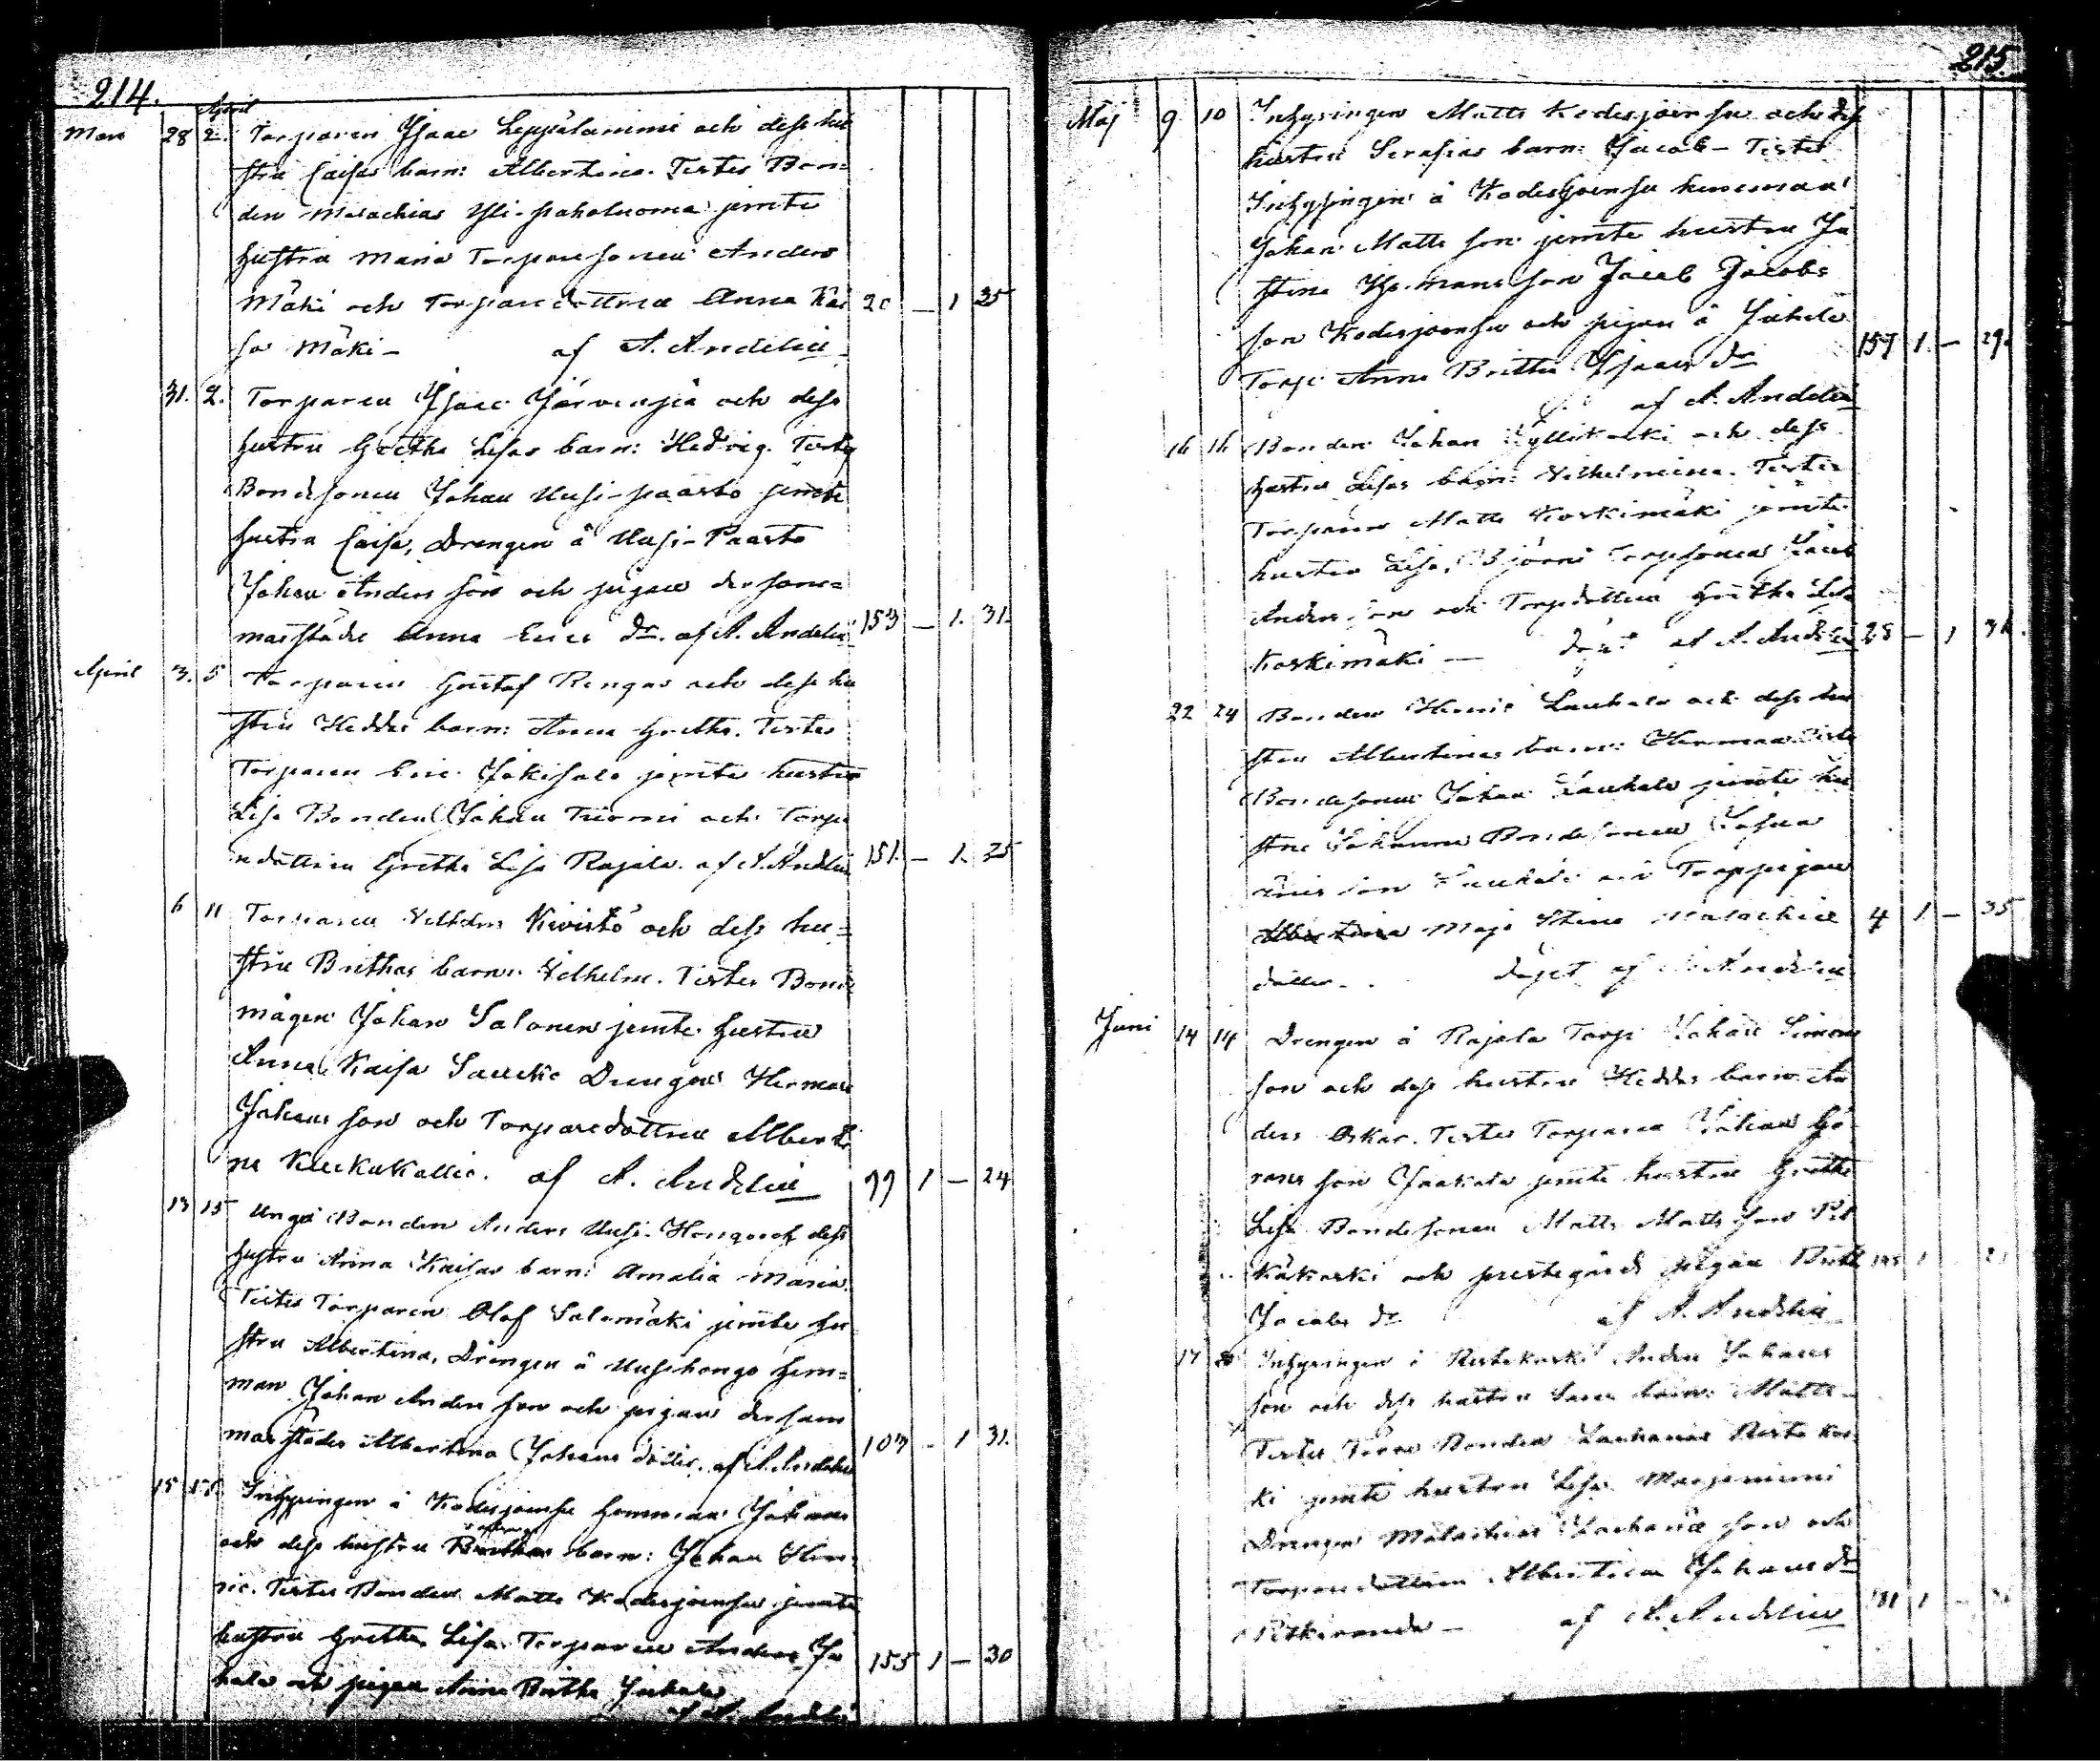 214.
April
Mars 28 2. Torparen Isaac Leppälammi och dess hu
stru Caisas barn: Albertina. Testes Bon-
den Malachias Yli-pahaluoma jemte
hustru Maria Torparesonen Anders
Mäki och Torparedottren Anna Kai 20 – 1 25
sa Mäki – af A. Andelin
31. 2. Torparen Isaac Järvenpä och dess
hustru Gretha Lisas barn: Hedvig. Testes
Bondesonen Johan Uusi-paasto jemte
hustru Caisa, Drengen å Uusi-Paasto
Johan Andersson och pigan dersam-
mastädes Anna Erics dr. af A. Andelin 153 – 1. 31.
April 3. 5 Torparen Gustaf Rengas och dess hu
stru Heddas barn: Anna Gretha. Testes
Torparen Eric Jokisalo jemte hustru
Lisa Bonden Johan Tuomi och Torpa
redottren Gretha Lisa Rajala. af A. Andelin 151. – 1. 25
6 11 Torparen Vilhelm Kivistö och dess hu-
stru Brithas barn: Vilhelm. Testes Bonde
mågen Johan Salonen jemte hustru
Anna Kaisa Drengen Herman
Johans son och Torparedottren Alberti
na Kuckukallio. af A. Andelin 99 1 – 24
13 15 Unga Bonden Anders Uusi-Hongo och dess
hustru Anna Kaisas barn: Amalia Maria.
Testes Torparen Olof Salomäki jemte hu
stru Albertina, Drengen å Uusihongo hem-
man Johan Anders son och pigan dersam
mastädes Albertina Johans dotter. af A. Andelin 103 – 1 31.
15 Inhysingen å Kodesjoensu hemman Johan
och dess hustru barn: Johan Hen-
ric. Testes Bonden Matts Kodesjoensu jemte
hustru Gretha Lisa Torparen Anders Ja 155 1 – 30
kala och pigan Anna Britha Jakala
af A. Andelin
215.
Maj 9 10 Inhysingen Matts Kodesjoensu och dess
hustru Serafias barn: Jacob – Testes
Inhysingen å Kodesjoensu hemman
Johan Matts son jemte hustru Ju
stina son Jacob Jacobs
son Kodesjoensu och pigan å Jakala
Torp Anna Britha Isaacs dr 157 1. – 29.
af A. Andelin
16 16 Bonden Johan Kyllikoski och dess
hustru Lisas barn: Vilhelmina. Testes
Torparen Matts Koskimäki jemte
hustru Lisa, Björni Torpsonen Jacob
Anders son och Torpdottren Gretha Lisa
Koskimäki – döpt af A. Andelin 28 – 1 31.
22 24 Bonden Henric Laukala och dess hu
stru Albertinas barn: Herman. Testes
Bondesonen Johan Laukala jemte hu
stru Johanna Bondesonen Josua
son Laukala och Torppigan
Albertina Maja Stina Malachias 4 1 – 35
dotter. döpt af A. Andelin
Juni 14 14 Drengen å Rajala Torp Johan Simons
son och dess hustru Heddas barn: An
ders Oskar. Testes Torparen Johan Gö-
rans son Jaakola jemte hustru Gretha
Lisa Bondesonen Matts Matts son Pit
käkoski och prestegårds pigan Britha 1
Jacobs dr af A. Andelin
17 Inhysingen i Ristikoski Anders Johans
son och dess hustru Saras barn: Matts –
Testes Bonden Zacharias Ristikos-
ki jemte hustru Lisa Marjaniemi
Drengen Malachias Zacharia son och
Torparedottren Albertina Johans dr
Pitkäranda – af A. Andelin 181 1 –